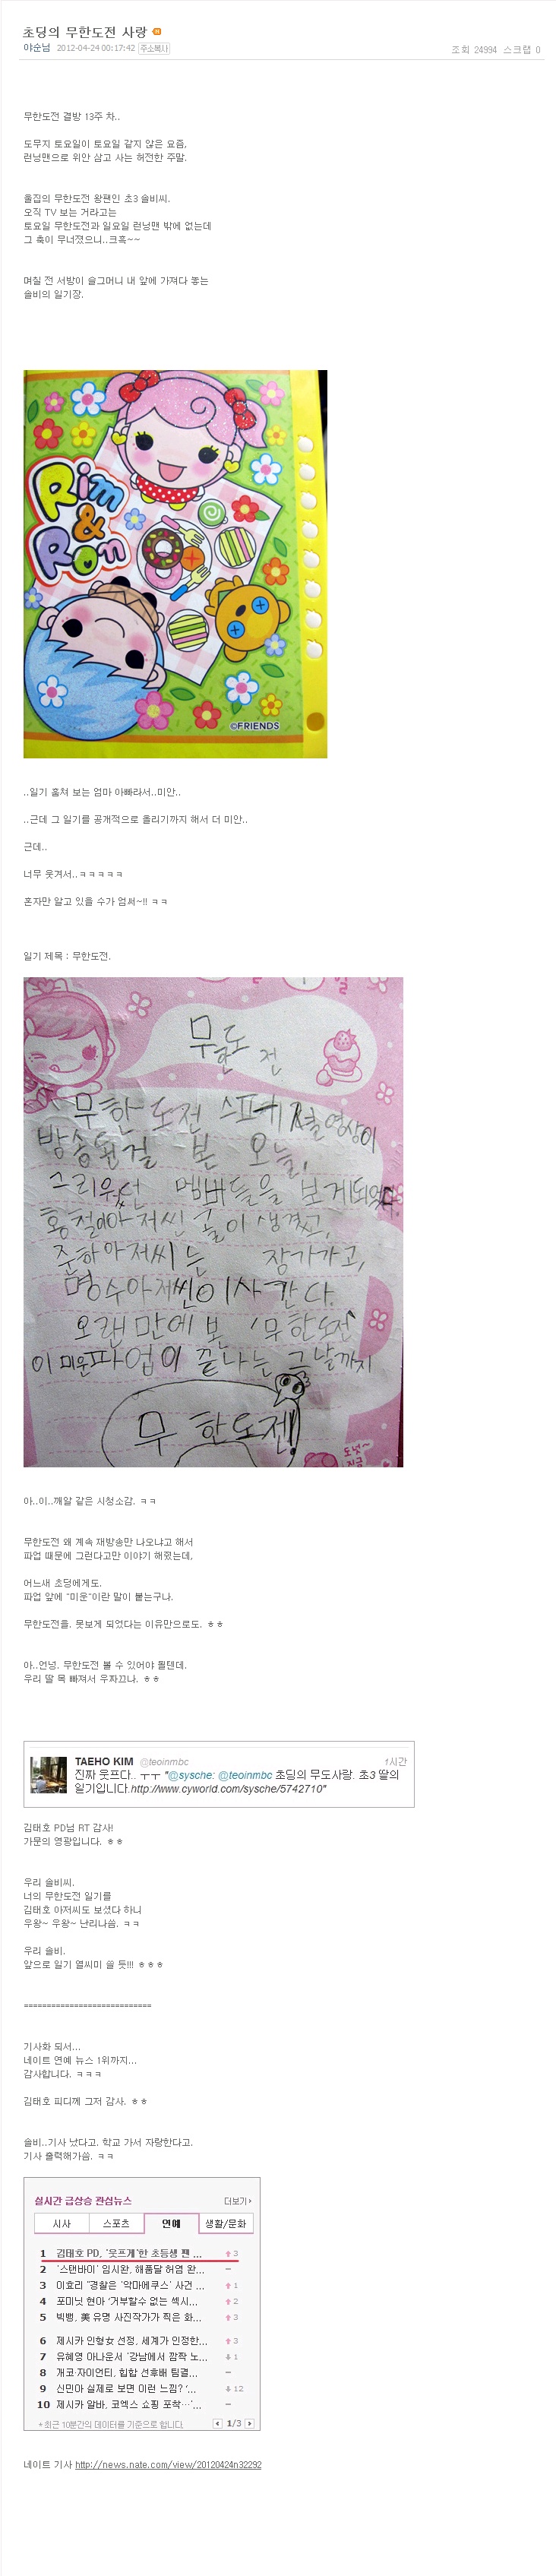 초딩의 무한도전 사랑
야순님 2012-04-24 00:17:42 주소복사
조회 24994 스크랩 0
무한도전 결방 13주 차..
도무지 토요일이 토요일 같지 않은 요즘,
런닝맨으로 위안 삼고 사는 허전한 주말.
울집의 무한도전 왕팬인 초3 솔비씨.
오직 TV 보는 거라고는
토요일 무한도전과 일요일 런닝맨 밖에 없는데
그 축이 무너졌으니..크흑~~
며칠 전 서방이 슬그머니 내 앞에 가져다 놓는
솔비의 일기장.
Rim
&
Ron
©FRIENDS
..일기 훔쳐 보는 엄마 아빠라서..미안..
..근데 그 일기를 공개적으로 올리기까지 해서 더 미안..
근데..
너무 웃겨서..ㅋㅋㅋㅋㅋ
혼자만 알고 있을 수가 엄써~!! ㅋㅋ
일기 제목 : 무한도전.
무한도전 스페셜영상이
방송윤걸 본 오늘,
그리우던 멤버들을 보게되었
홍철아저씨 둘이 생겼고,
준하아저씨는 장가가고,
명수아저씬 이사간다.
오랜만에 본 무한도전
이 미운파업이 끝나는 그날까지
무한도전!
도넛~
아..이..깨알 같은 시청소감. ㅋㅋ
무한도전 왜 계속 재방송만 나오냐고 해서
파업 때문에 그런다고만 이야기 해줬는데,
어느새 초딩에게도,
파업 앞에 "미운"이란 말이 붙는구나.
무한도전을. 못보게 되었다는 이유만으로도. ㅎㅎ
아..언넝. 무한도전 볼 수 있어야 될텐데.
우리 딸 목 빠져서 우짜끄나. ㅎㅎ
TAEHO KIM @teoinmbc 1시간
진짜 웃프다.. ㅜㅜ "@sysche: @teoinmbc 초딩의 무도사랑. 초3 딸의
일기입니다.http://www.cyworld.com/sysche/5742710"
김태호 PD님 RT 감사!
가문의 영광입니다. ㅎㅎ
우리 솔비씨.
너의 무한도전 일기를
김태호 아저씨도 보셨다 하니
우왕~ 우왕~ 난리나씀. ㅋㅋ
우리 솔비.
앞으로 일기 열씨미 쓸 듯!!! ㅎㅎㅎ
============================
기사화 되서...
네이트 연예 뉴스 1위까지...
감사합니다. ㅋㅋㅋ
김태호 피디께 그저 감사. ㅎㅎ
솔비..기사 났다고. 학교 가서 자랑한다고.
기사 출력해가씀. ㅋㅋ
실시간 급상승 관심뉴스 더보기
시사 스포츠 연예 생활/문화
1 김태호 PD, '웃프게'한 초등생 팬 ... 3
2 '스탠바이' 임시완, 해품달 허염 완... –
3 이효리 "경찰은 '악마에쿠스' 사건 ... 1
4 포미닛 현아 '거부할수 없는 섹시... 2
5 빅뱅, 美 유명 사진작가가 찍은 화... 3
6 제시카 인형女 선정, 세계가 인정한... 3
7 유혜영 아나운서 '강남에서 깜짝 노... 1
8 개코·자이언티, 힙합 선후배 팀결... –
9 신민아 실제로 보면 이런 느낌? '... 12
10 제시카 알바, 코엑스 쇼핑 포착…'... –
* 최근 10분간의 데이터를 기준으로 합니다. 1/3
네이트 기사 http://news.nate.com/view/20120424n32292